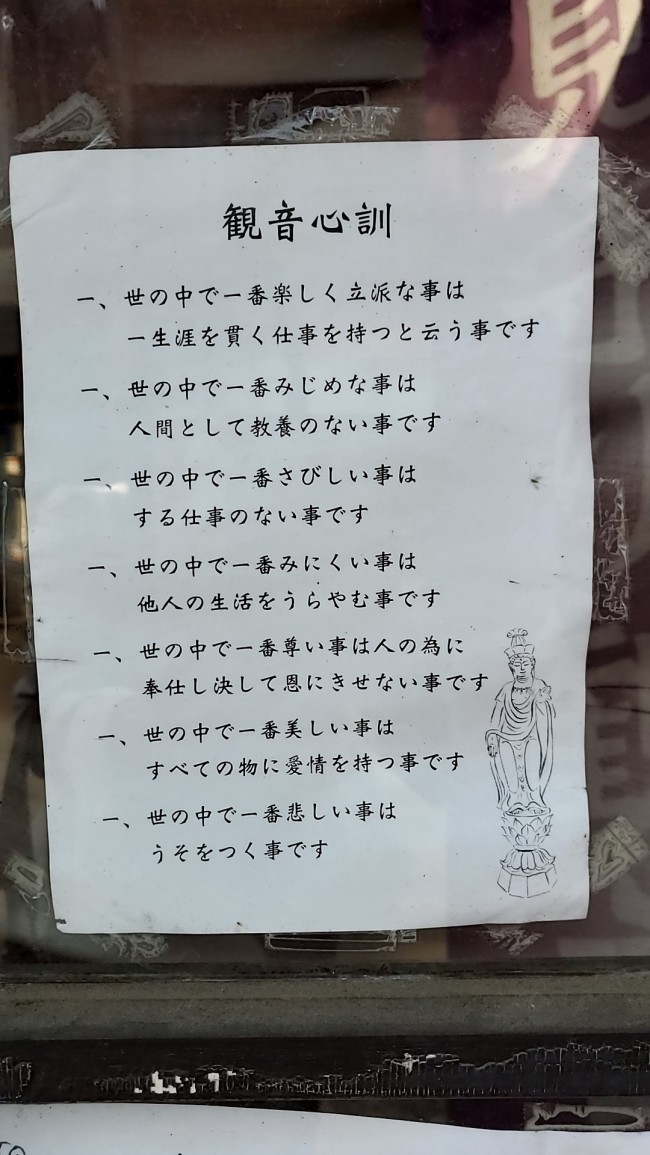 見
観音心訓
一、世の中で一番楽しく立派な事は
一生涯を貫く仕事を持つと云う事です
一、世の中で一番みじめな事は
人間として教養のない事です
一、世の中で一番さびしい事は
する仕事のない事です
一、世の中で一番みにくい事は
他人の生活をうらやむ事です
一、世の中で一番尊い事は人の為に
奉仕し決して恩にきせない事です
一、世の中で一番美しい事は
すべての物に愛情を持つ事です
一、世の中で一番悲しい事は
うそをつく事です